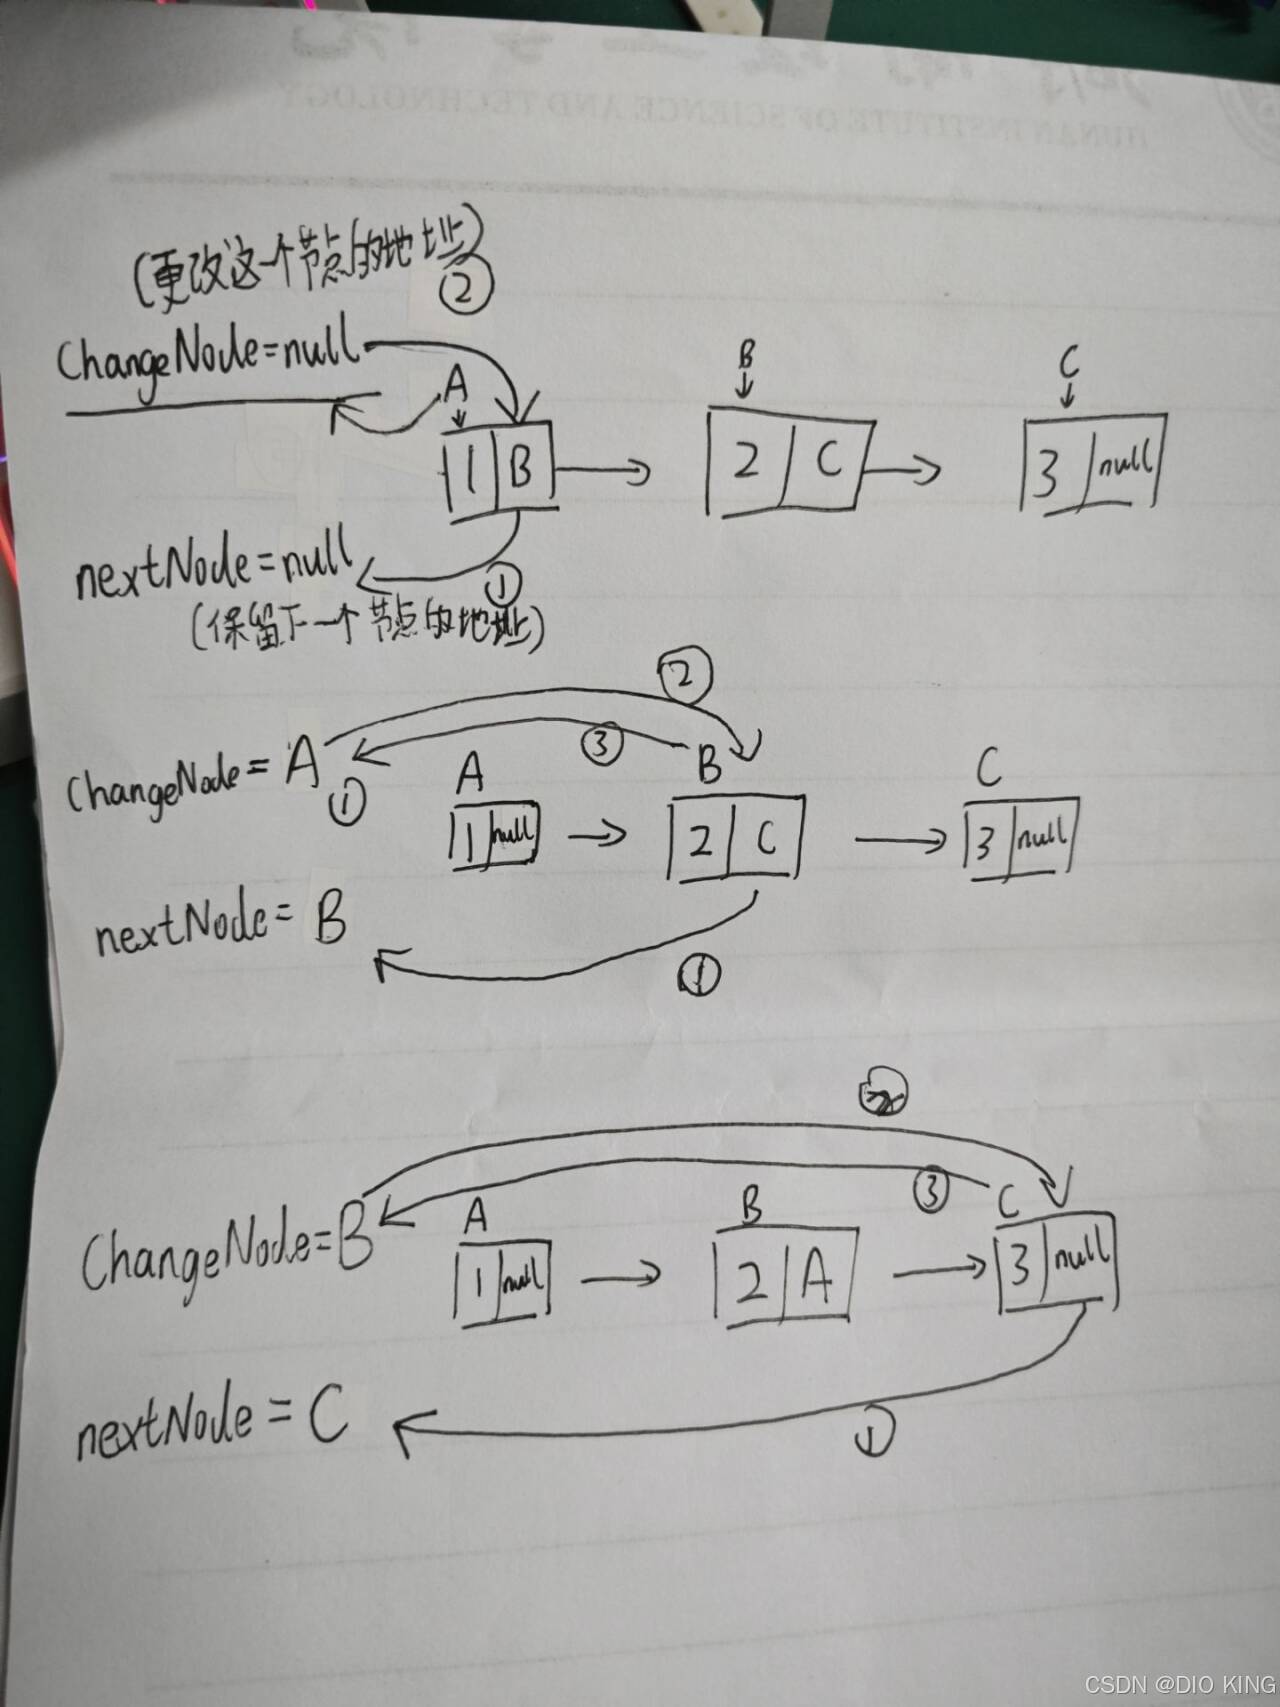 HUNAN INSTITUTE OF SCIENCE AND TECHNOLOGY
(更改这个节点的地址)
②
ChangeNode=null
A
B
C
1 B
2 C
3 null
nextNode=null
①
(保留下一个节点的地址)
②
③
ChangeNode= A
①
A
B
C
1 null
2 C
3 null
nextNode= B
①
③
ChangeNode=B
A
B
C
1 null
2 A
3 null
nextNode = C
①
CSDN @DIO KING